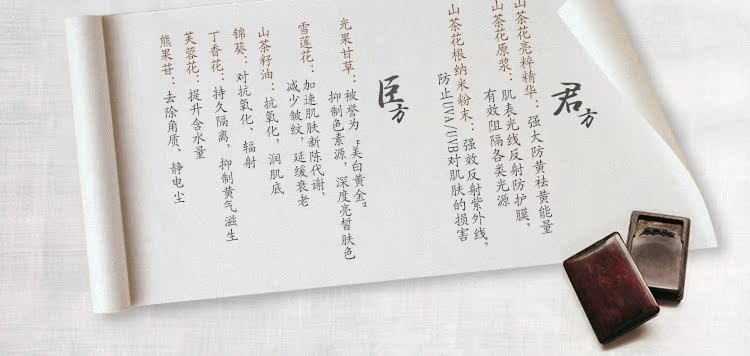 君方
山茶花亮粹精华：强大防黄祛黄能量
山茶花原浆：肌表光线反射防护膜，
有效阻隔各类光源
山茶花根纳米粉末：强效反射紫外线，
防止UVA/UVB对肌肤的损害
臣方
光果甘草：被誉为“美白黄金”
抑制色素源，深度亮皙肤色
雪莲花：加速肌肤新陈代谢，
减少皱纹，延缓衰老
山茶籽油：抗氧化，润肌底
锦葵：对抗氧化、辐射
丁香花：持久隔离，抑制黄气滋生
芙蓉花：提升含水量
熊果苷：去除角质、静电尘